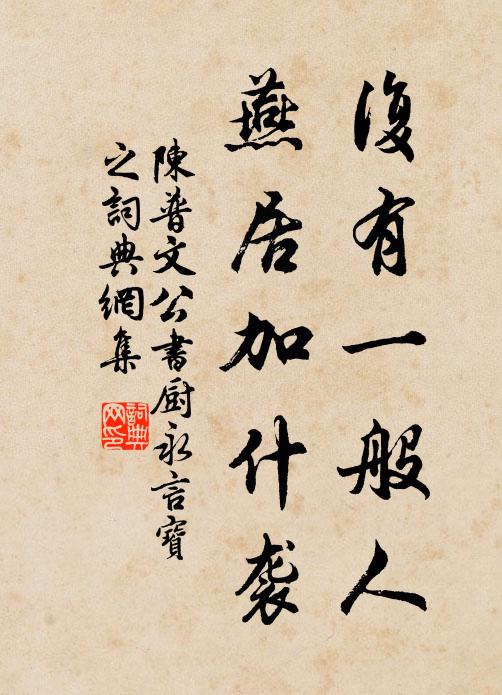 復有一般人
燕居加什袭
陳普文公書厨永言寶
之詞典網集
詞典
网印